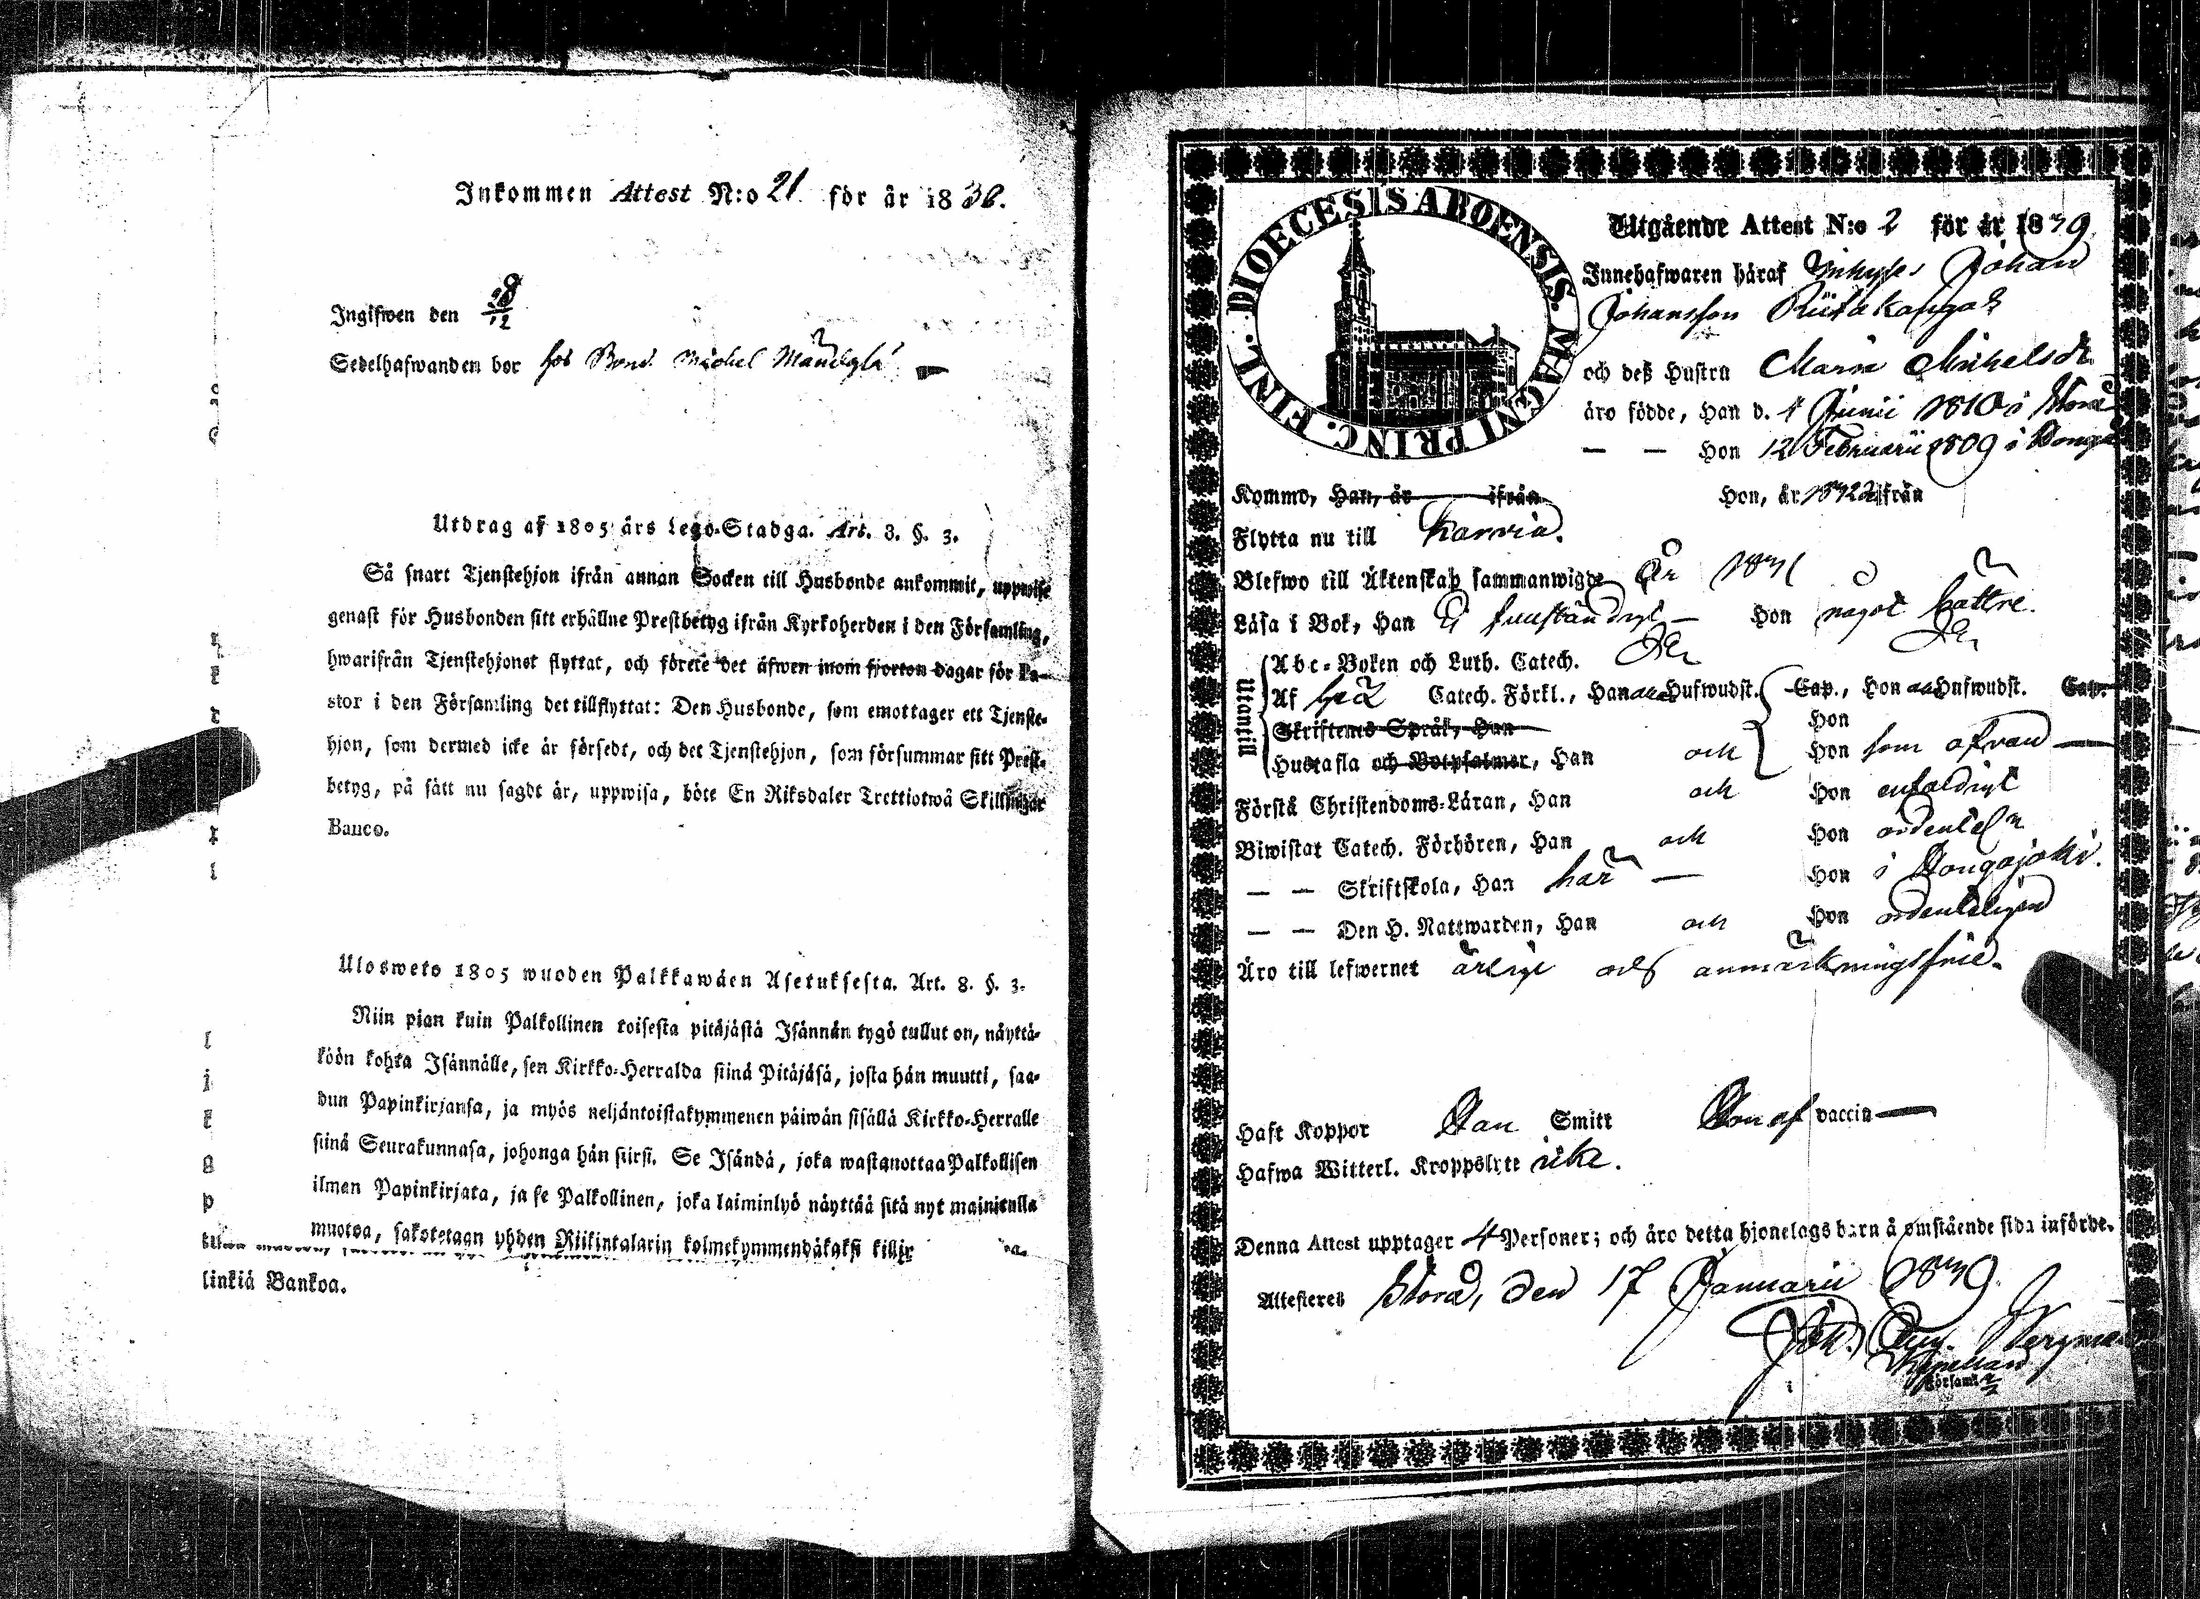 Inkommen Attest N:o 21 för år 1838.
Ingifwen den 28/12
Sedelhafwanden bor hos Bond. Michel
Utdrag af 1805 års Lego-Stadga. Art. 8. §. 3.
Så snart Tjenstehjon ifrån annan Socken till Husbonde ankommit, uppwise
genast för Husbonden sitt erhållne Prestbetyg ifrån Kyrkoherden i den Församling,
hwarifrån Tjenstehjonet flyttat, och förete det äfwen inom fjorton dagar för Pa-
stor i den Församling det tillflyttat: Den Husbonde, som emottager ett Tjenste-
hjon, som dermed icke är försedt, och det Tjenstehjon, som försummar sitt Prest-
betyg, på sätt nu sagdt är, uppwisa, böte En Riksdaler Trettiotwå Skillingar
Banco.
Ulosweto 1805 wuoden Palkkawäen Asetuksesta. Art. 8. §. 3.
Niin pian kuin Palkollinen toisesta pitäjästä Isännän tygö tullut on, näyttä-
köön kohta Isännälle, sen Kirkko-Herralda siinä Pitäjäsä, josta hän muutti, saa-
dun Papinkirjansa, ja myös neljäntoistakymmenen päiwän sisällä Kirkko-Herralle
siinä Seurakunnasa, johonga hän siirsi. Se Isändä, joka wastanottaa Palkollisen
ilman Papinkirjata, ja se Palkollinen, joka laiminlyö näyttää sitä nyt mainitulla
muotoa, sakotetaan yhden Riikintalarin kolmekymmendäkaksi killin
linkiä Bankoa.
DIOECESIS ABOENSIS. MAGNI PRINC. FINL.
Utgående Attest N:o 2 för år 1839.
Innehafwaren häraf Inhyses Johan
Johansson Riitakangas
och deß Hustru Maria Mickelsdr
äro födde, Han d. 4 Junii 1810 i Storå
— — Hon 12 Februarii 1809 i
Kommo, Han, år ifrån Hon, år ifrån
Flytta nu till Karvia.
Blefwo till Äktenskap sammanwigde År 1831
Läsa i Bok, Han Hon något bättre.
Utantill
Abc-Boken och Luth. Catech.
Af Catech. Förkl., Han Hufwudst. Cap., Hon Hufwudst. Cap.
Skriftenes Språk, Han Hon
Hustafla och Botpsalmer, Han och Hon som ofvan —
Förstå Christendoms-Läran, Han och Hon enfaldigt
Biwistat Catech. Förhören, Han och Hon ordentel:n
— — Skriftskola, Han här — Hon i Hongojoki.
— — Den H. Nattwarden, Han och Hon ordenteligen
Äro till lefwernet ärlige och anmärkningsfrie.
Haft Koppor Han Smitt Hon af vaccin —
Hafwa Witterl. Kroppslyte icke.
Denna Attest upptager 4 Personer; och äro detta hjonelags barn å omstående sida införde.
Attesteres Storå, den 17 Januarii 1839.
Joh. Bergman
Kapellan
i Församl.